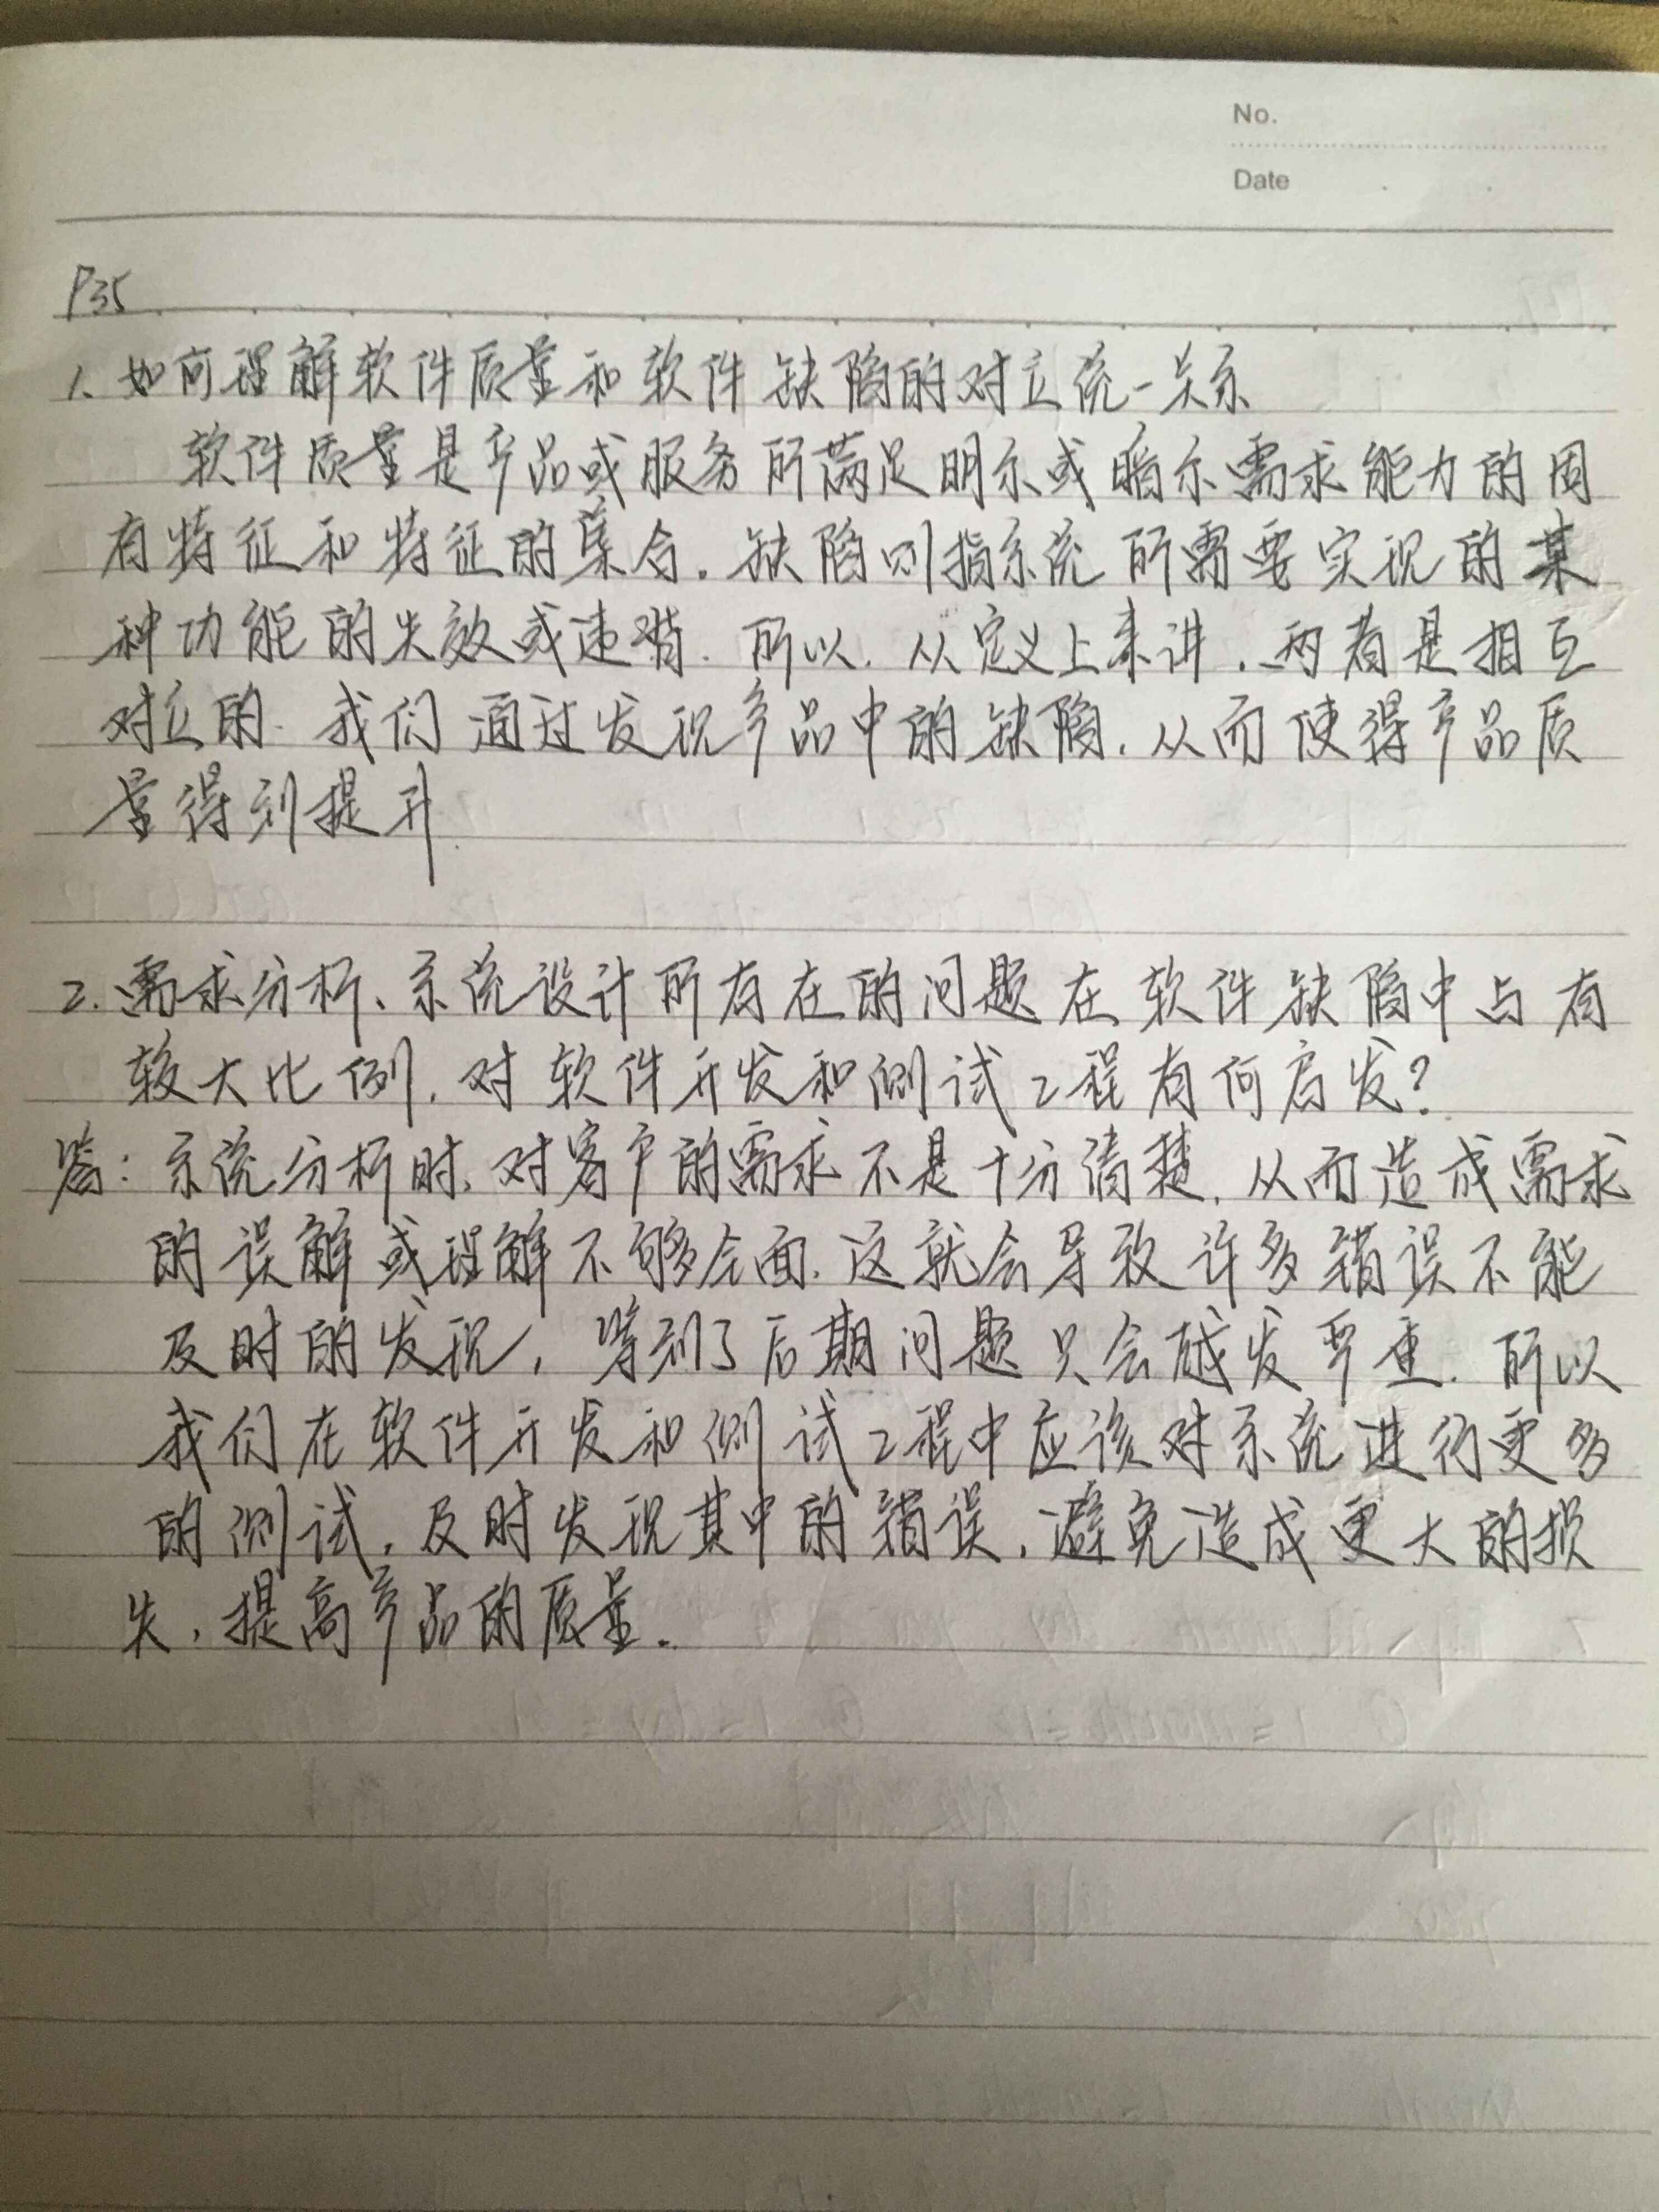 No.
Date
P35
1. 如何理解软件质量和软件缺陷的对立统一关系
软件质量是产品或服务所满足明示或暗示需求能力的固
有特征和特征的集合. 缺陷则指系统所需要实现的某
种功能的失效或违背. 所以. 从定义上来讲. 两者是相互
对立的. 我们通过发现产品中的缺陷. 从而使得产品质
量得到提升.
2. 需求分析、系统设计所存在的问题在软件缺陷中占有
较大比例. 对软件开发和测试工程有何启发?
答: 系统分析时. 对客户的需求不是十分清楚. 从而造成需求
的误解或理解不够全面. 这就会导致许多错误不能
及时的发现, 等到了后期问题只会越发严重. 所以
我们在软件开发和测试工程中应该对系统进行更多
的测试, 及时发现其中的错误. 避免造成更大的损
失, 提高产品的质量.